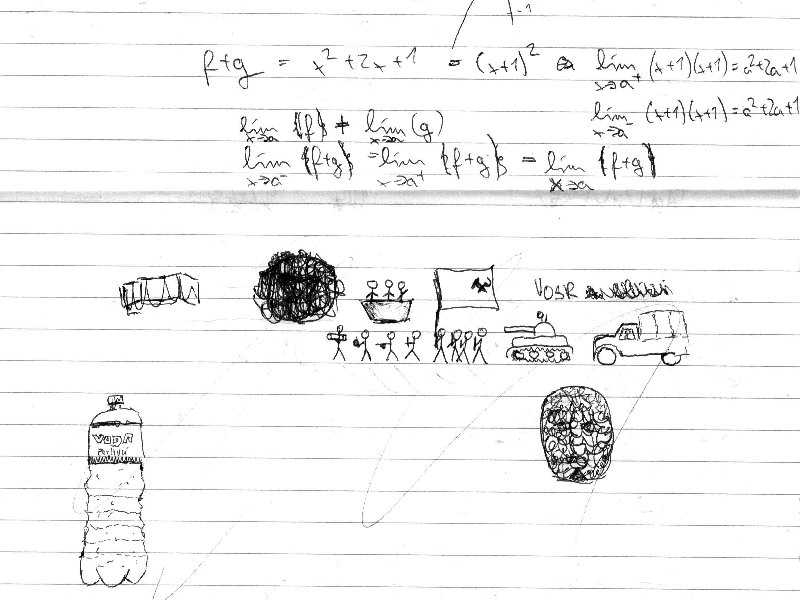 f+g = x² + 2x + 1 = (x+1)² lim x→a⁺ (x+1)(x+1) = a²+2a+1
lim x→a⁻ (x+1)(x+1) = a²+2a+1
lim x→a (f) ≠ lim x→a (g)
lim x→a⁻ (f+g) = lim x→a⁺ (f+g) = lim x→a (f+g)
VOSR
VODA